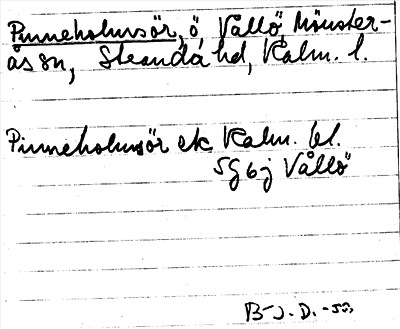 Pinneholmsör, ö, Vållö, Mönster-
ås sn, Stranda hd, Kalm. l.
Pinneholmsör ek Kalm. bl.
5g6j Vållö
B-J. D. -53